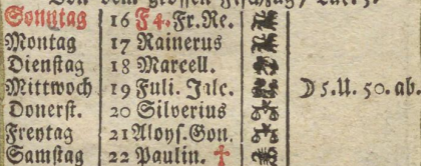 Sonntag 16 F4. Fr. Re.
Montag 17 Rainerus
Dienstag 18 Marcell.
Mittwoch 19 Juli. Falc. ☽ 5. U. 50. ab.
Donerst. 20 Silverius
Freytag 21 Aloys. Gon.
Samstag 22 Paulin. †